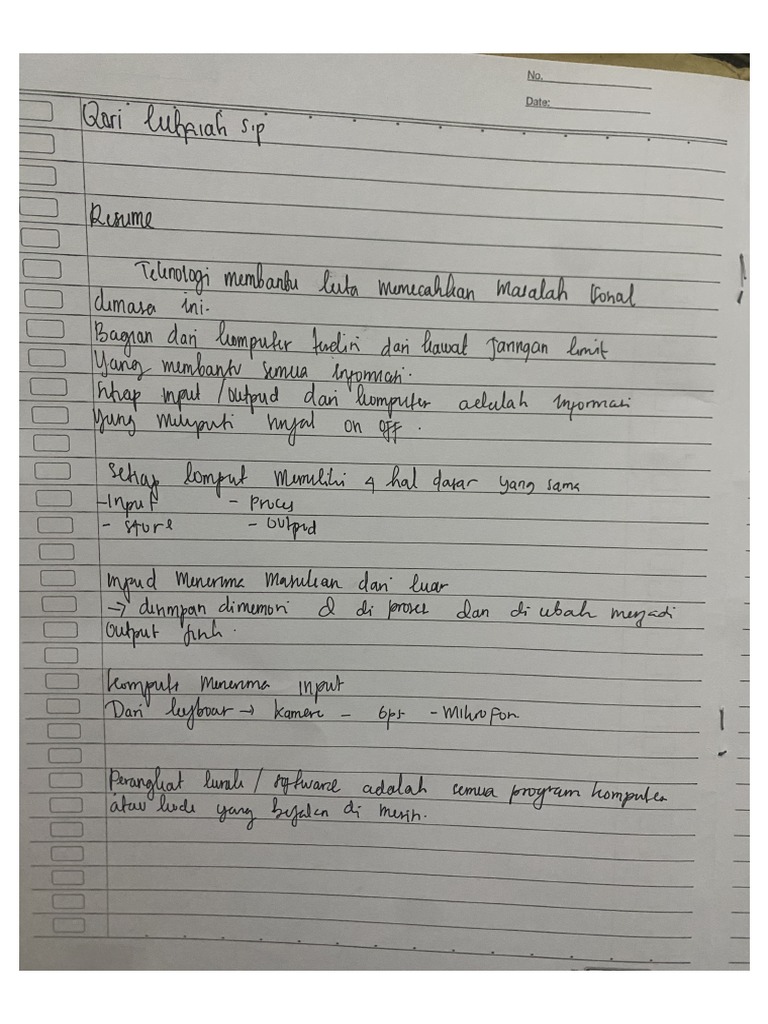 No.
Date:
Qori S.p
Resume
Teknologi membantu kita memecahkan masalah
dimasa ini.
Bagian dari komputer terdiri dari kawat Jaringan limit
Yang membantu semua informasi.
Setiap input / output dari komputer adalah informasi
Yang meliputi sinyal on off.
Setiap komput memiliki 4 hal dasar yang sama
- Input - Proces
- Store - Output
Input menerima masukan dari luar
→ disimpan dimemori & di proses dan di ubah menjadi
Output
Komputer menerima input
Dari keyboar → kamera - Gps - Mikrofon
Perangkat lunak / software adalah semua program komputer
atau kode yang berjalan di mesin.